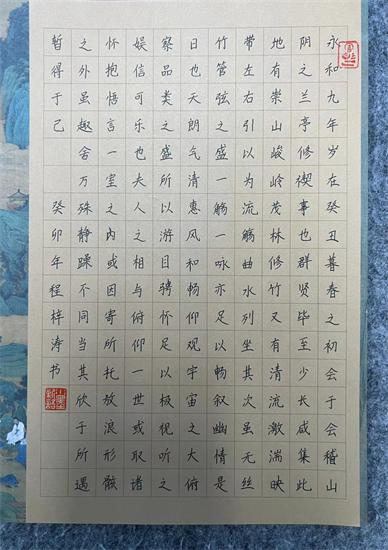 永和九年岁在癸丑暮春之初会于会稽山
阴之兰亭修禊事也群贤毕至少长咸集此
地有崇山峻岭茂林修竹又有清流激湍映
带左右引以为流觞曲水列坐其次虽无丝
竹管弦之盛一觞一咏亦足以畅叙幽情是
日也天朗气清惠风和畅仰观宇宙之大俯
察品类之盛所以游目骋怀足以极视听之
娱信可乐也夫人之相与俯仰一世或取诸
怀抱悟言一室之内或因寄所托放浪形骸
之外虽趣舍万殊静躁不同当其欣于所遇
暫得于己 癸卯年程梓涛书